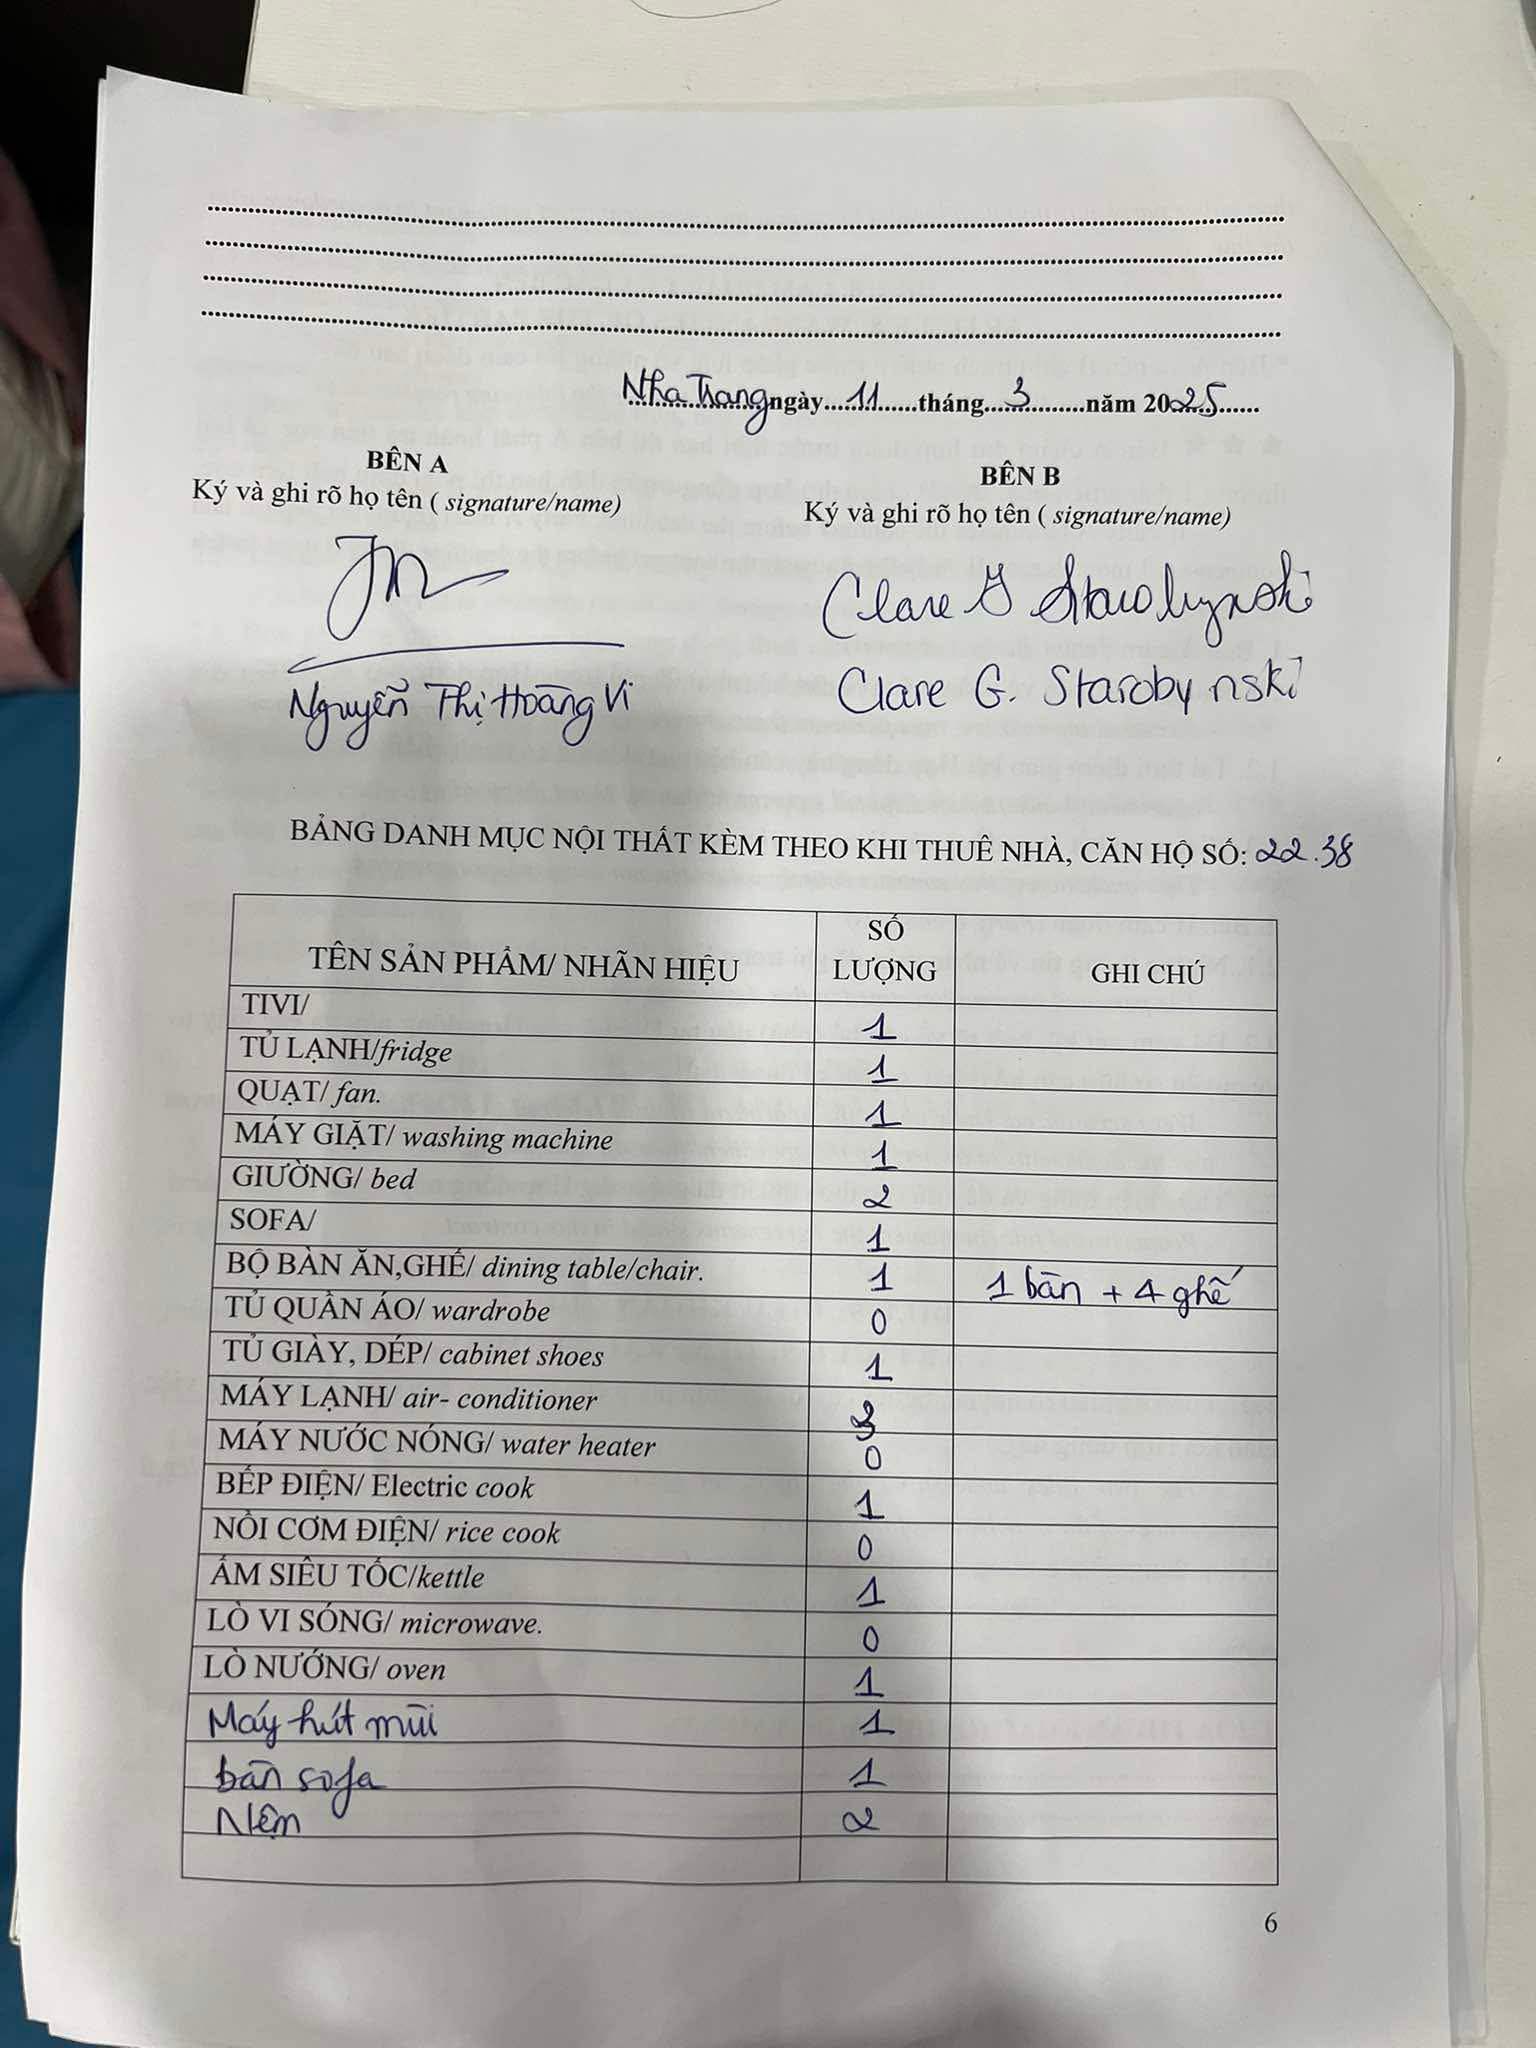 Nha Trang ngày 11 tháng 3 năm 2025
BÊN A
Ký và ghi rõ họ tên ( signature/name)
BÊN B
Ký và ghi rõ họ tên ( signature/name)
Clare G Starobynski
Nguyễn Thị Hoàng Vi
Clare G. Starobynski
BẢNG DANH MỤC NỘI THẤT KÈM THEO KHI THUÊ NHÀ, CĂN HỘ SỐ: 22.38
TÊN SẢN PHẨM/ NHÃN HIỆU SỐ LƯỢNG GHI CHÚ
TIVI/ 1
TỦ LẠNH/fridge 1
QUẠT/ fan. 1
MÁY GIẶT/ washing machine 1
GIƯỜNG/ bed 2
SOFA/ 1
BỘ BÀN ĂN,GHẾ/ dining table/chair. 1 1 bàn + 4 ghế
TỦ QUẦN ÁO/ wardrobe 0
TỦ GIÀY, DÉP/ cabinet shoes 1
MÁY LẠNH/ air- conditioner 3
MÁY NƯỚC NÓNG/ water heater 0
BẾP ĐIỆN/ Electric cook 1
NỒI CƠM ĐIỆN/ rice cook 0
ẤM SIÊU TỐC/kettle 1
LÒ VI SÓNG/ microwave. 0
LÒ NƯỚNG/ oven 1
Máy hút mùi 1
bàn sofa 1
Nệm 2
6